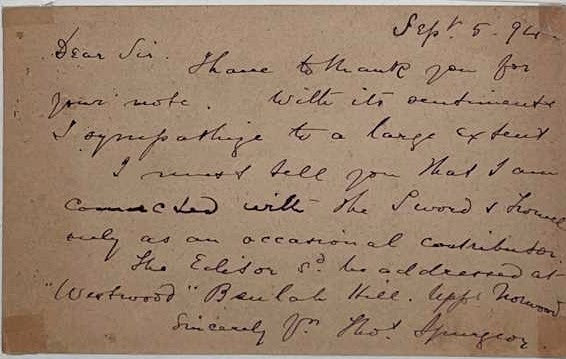 Sept 5. 94.
Dear Sir. I have to thank you for
your note. With its sentiments
I sympathize to a large extent.
I must tell you that I am
connected with the Sword & Trowel
only as an occasional contributor.
The Editor sd be addressed at
"Westwood" Beulah Hill. Uppr Norwood
Sincerely Yrs Thos Spurgeon